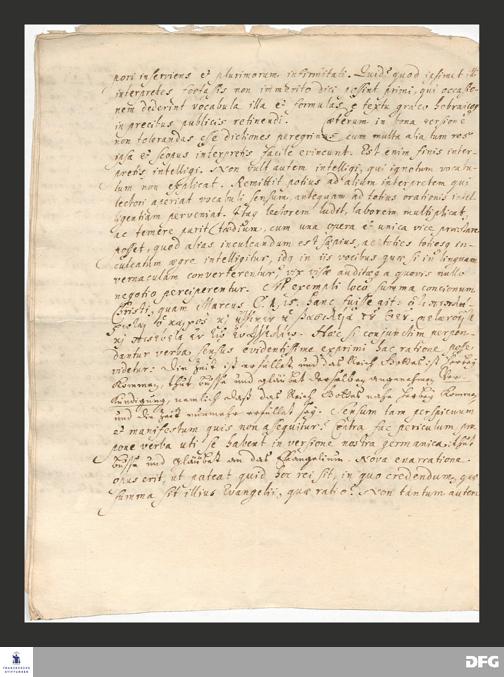 nori inserviens et plurimorum infirmitati. Quid? quod ipsimet illi
interpretes fortassis non immerito dici possint primi, qui occasio-
nem dederint vocabula illa et formulas e textu graeco hebraicoq
in precibus publicis retinendi. Caeterum in bona versione
non tolerandas esse dictiones peregrinas, cum multa alia tum res
ipsa et scopus interpretis facile evincunt. Est enim finis inter-
pretis intelligi. Non vult autem intelligi, qui ignotum vocabu-
lum non explicat. Remittit potius ad alium interpretem qui
lectori aperiat vocabuli sensum, antequam ad totius orationis intel-
ligentiam perveniat. Itaq lectorem ludit, laborem multiplicat,
ac temere parit taedium, cum una opera et unica vice praestare
posset, quod alias inculcandum est saepius, et toties totiesq in-
culcatum aegre intelligitur, idq in iis vocibus quae si in linguam
vernaculam converterentur, vix visae auditaeq a quovis nullo
negotio perciperentur. Ut exempli loco summa concionum
Christi, quam Marcus C. 1, 15. hanc fuisse ait: ὅτι πεπλήρω-
ται ὁ καιρὸς καὶ ἤγγικεν ἡ βασιλεία τοῦ Θεοῦ, μετανοεῖτε
καὶ πιστεύετε ἐν τῷ εὐαγγελίῳ. Haec si conjunctim perpen-
dantur verba, sensus evidentissime exprimi hac ratione posse
videtur: Die Zeit ist erfüllet, und das Reich Gottes ist herbey
kommen, thut busse und gläubet derselben angenehmen Ver-
kündigung, nemlich daß das Reich Gottes nahe herbey kommen
und die Zeit nunmehr erfüllet sey. Sensum tam perspicuum
et manifestum quis non assequitur? Contra fac periculum, pro-
pone verba uti se habent in versione nostra germanica: thut
busse und gläubet an das Evangelium. Nova enarratione
opus erit, ut pateat quid hoc rei sit, in quo credendum, quae
summa sit illius Evangelii, quae ratio? Non tantum autem
FRANCKESCHE
STIFTUNGEN
DFG